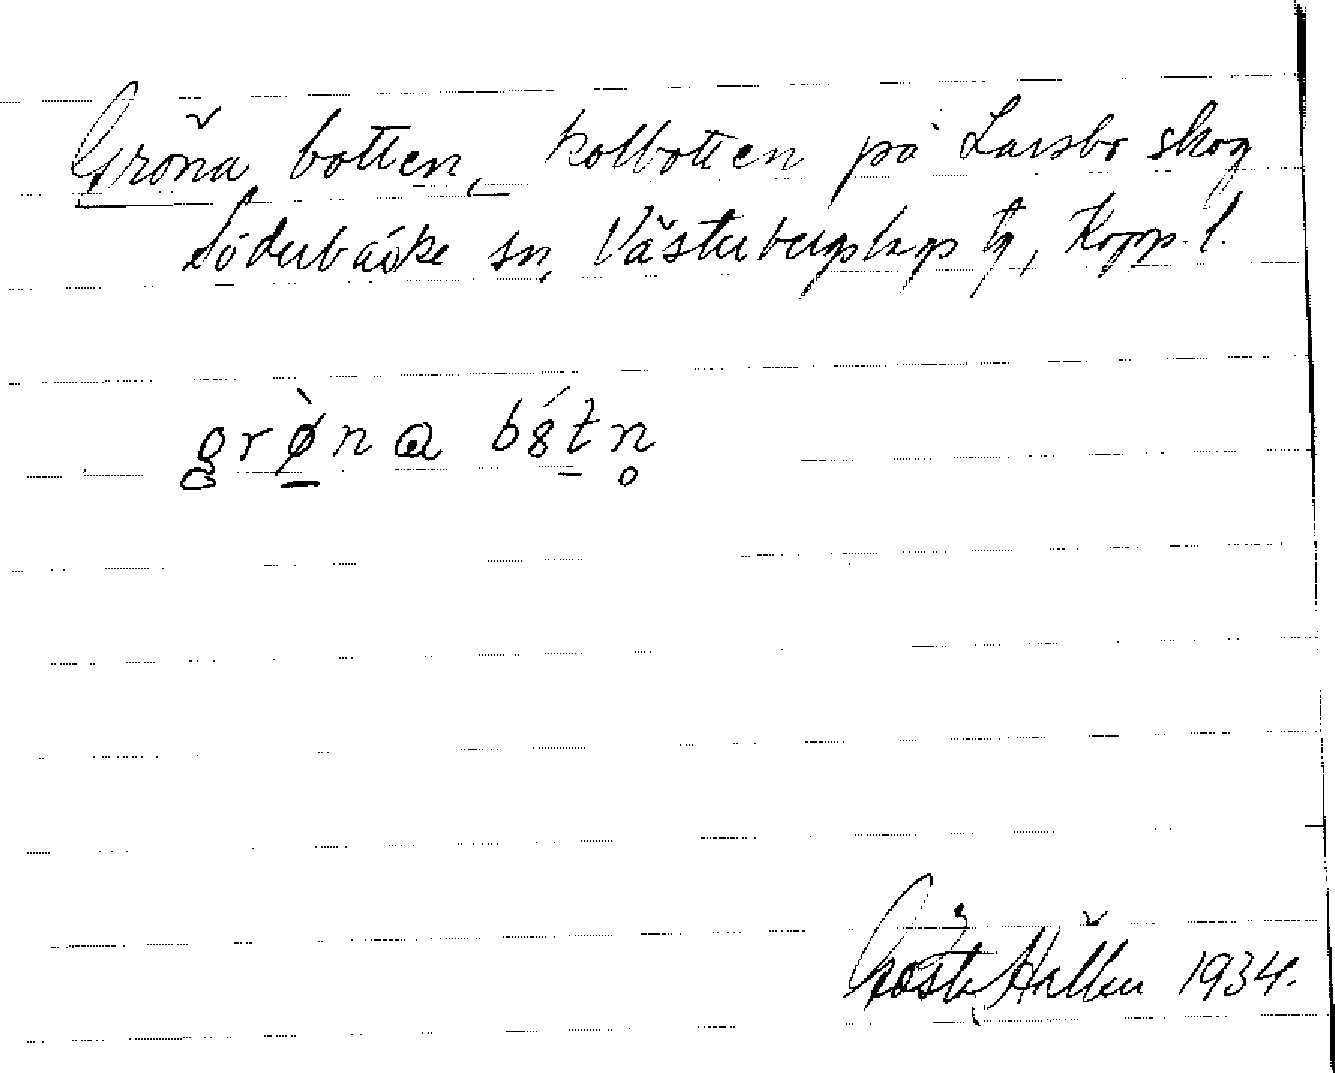 Gröna botten, kolbotten på Larsbo skog
Söderbärke sn, Västerbergslags tg, Kopp. l.
grø̀na bótn̥
Gösta Hällen 1934.